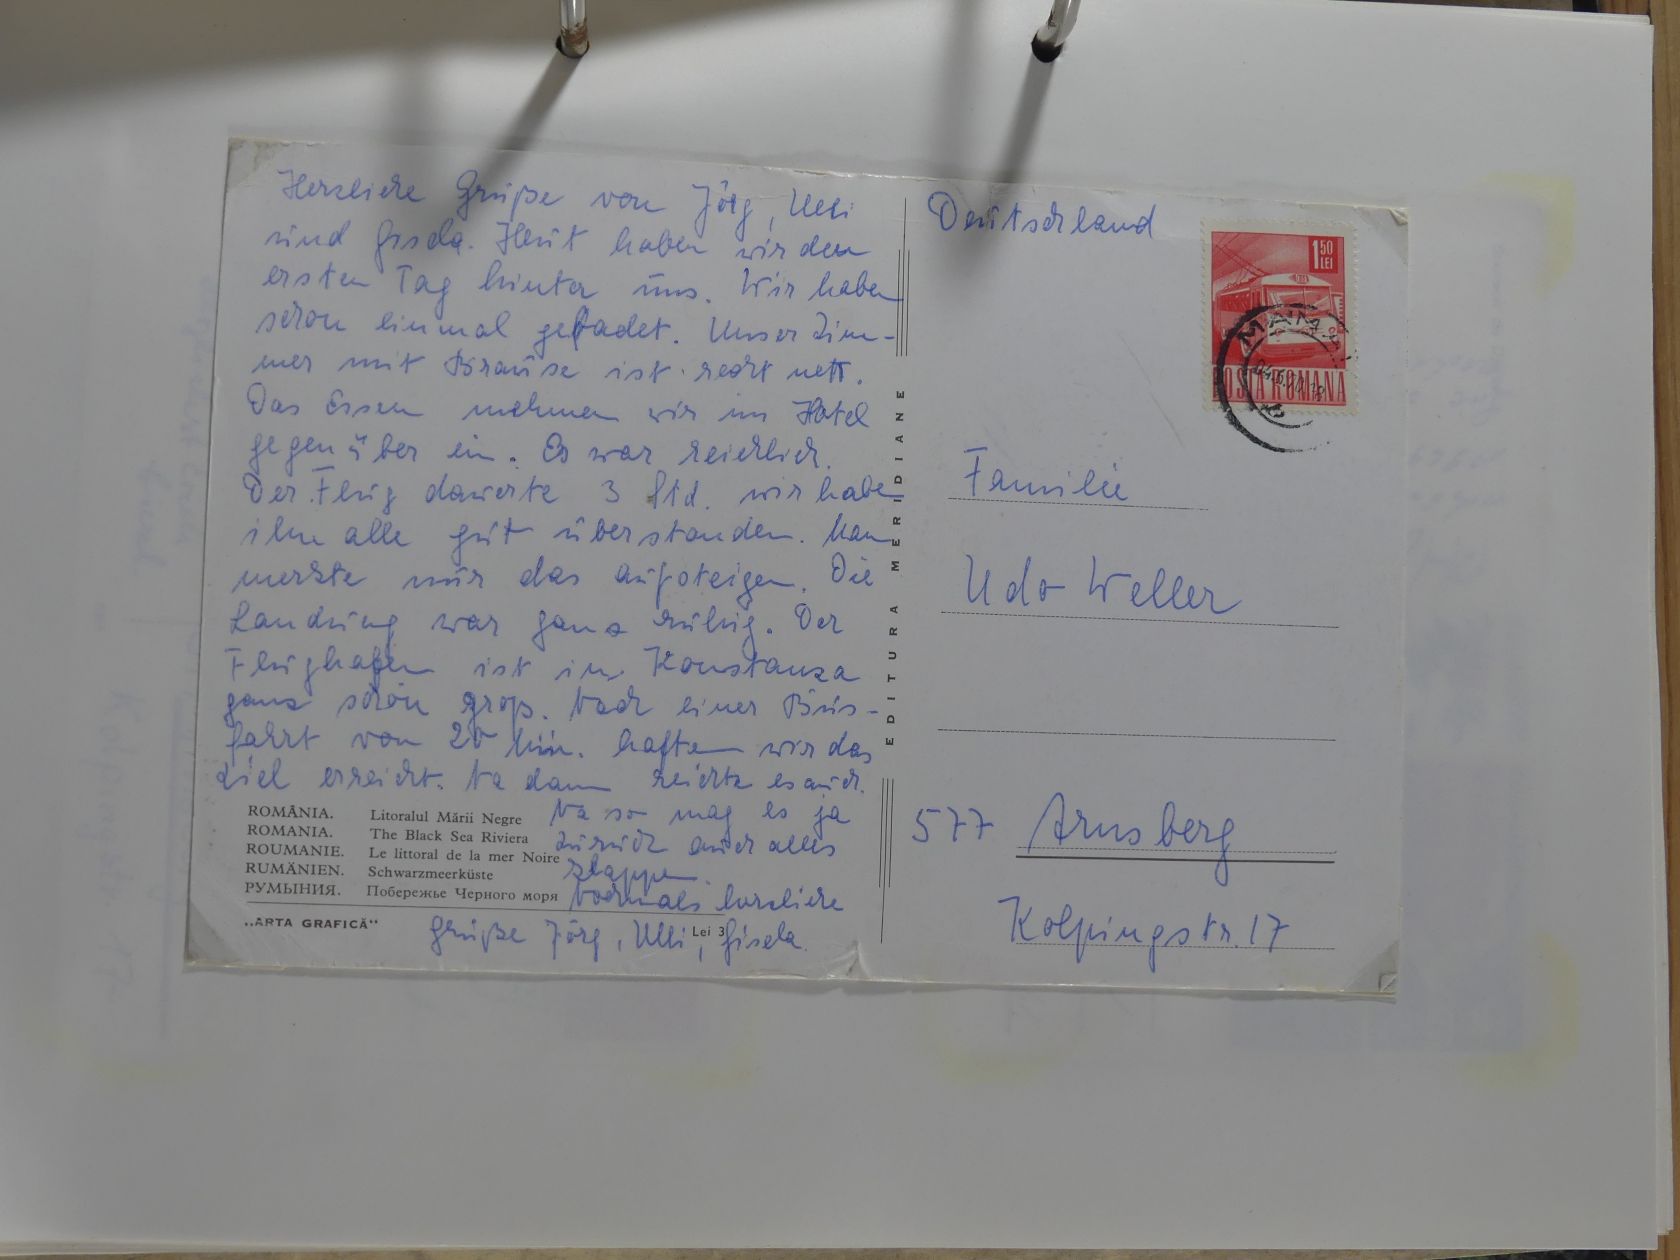 Herzliche Grüße von Jörg, Ulli
und Gisela. Heut haben wir den
ersten Tag hinter uns. Wir haben
schon einmal gebadet. Unser Zim-
mer mit Brause ist recht nett.
Das Essen nehmen wir im Hotel
gegenüber ein. Es war reichlich.
Der Flug dauerte 3 Std. wir haben
ihn alle gut überstanden. Man
merkte nur das aufsteigen. Die
Landung war ganz ruhig. Der
Flughafen ist in Konstanza
ganz schön groß. Nach einer Bus-
fahrt von 20 Min. hatten wir das
Ziel erreicht. Na dann reichte es auch.
Na so mag es ja
zurück auch alles
klappen.
Nochmals herzliche
Grüße Jörg, Ulli, Gisela.
ROMÂNIA. Litoralul Mării Negre
ROMANIA. The Black Sea Riviera
ROUMANIE. Le littoral de la mer Noire
RUMÄNIEN. Schwarzmeerküste
РУМЫНИЯ. Побережье Черного моря
„ARTA GRAFICĂ“
Lei 3
EDITURA MERIDIANE
Deutschland
1 50 LEI
POSTA ROMANA
Familie
Udo Weller
577 Arnsberg
Kolpingstr. 17